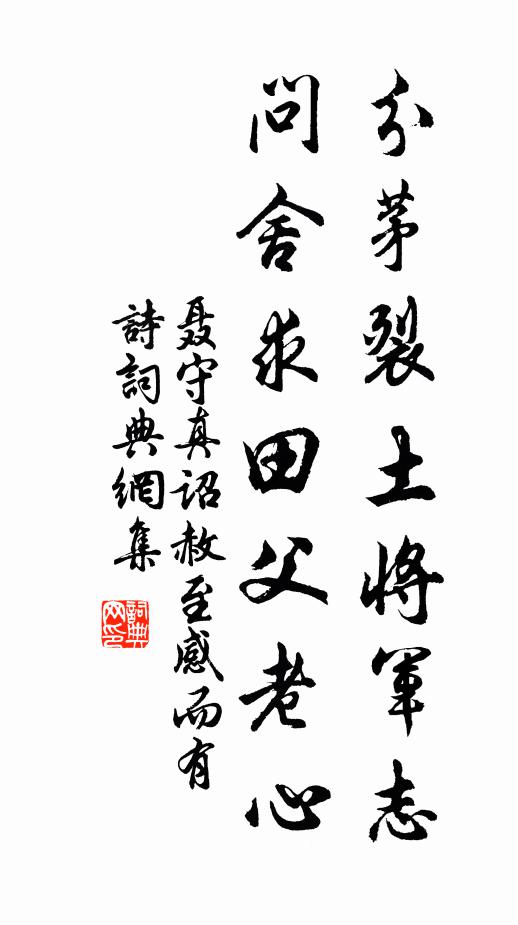 分茅裂土將軍志
問舍求田父老心
聂守真詔赦至感而有
詩詞典網集
詞典
网印